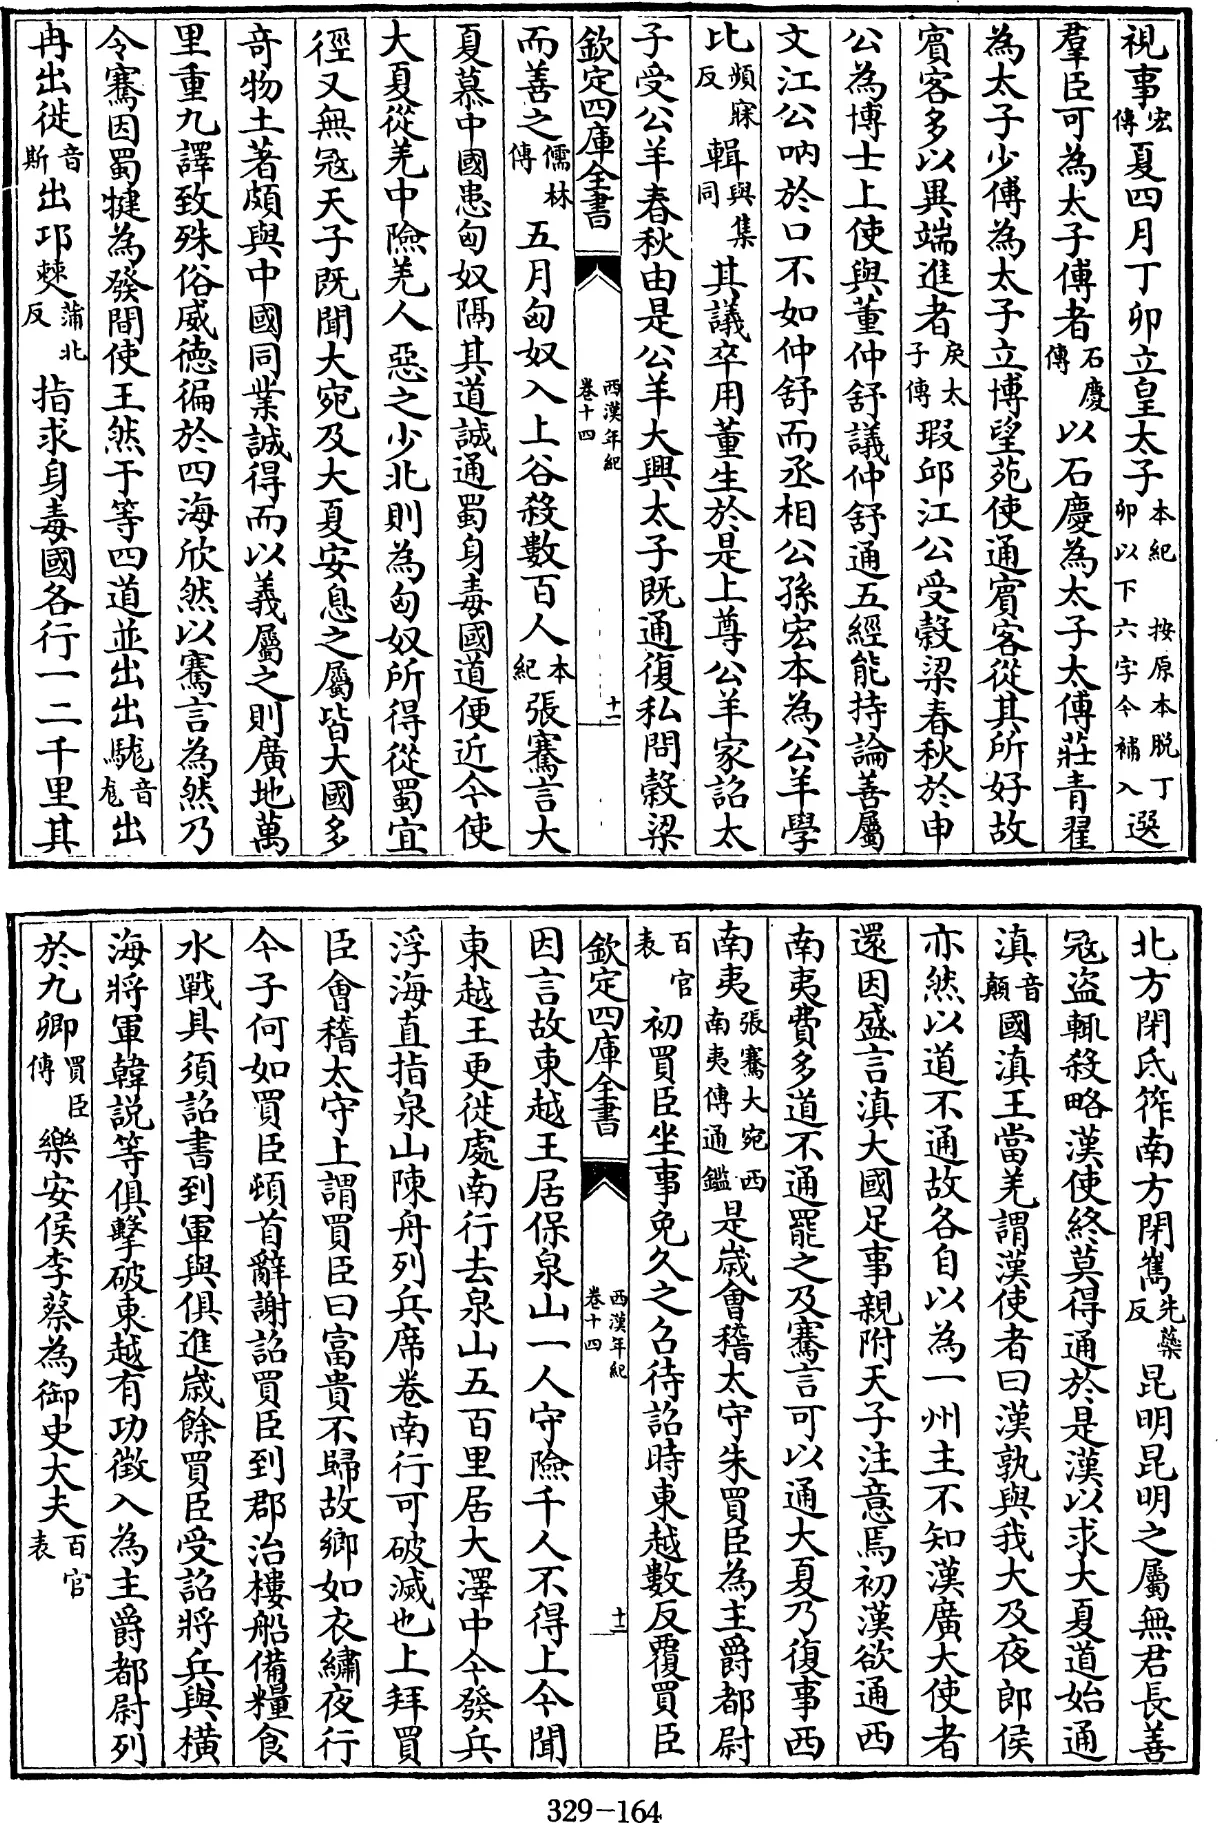 視事宏傳夏四月丁卯立皇太子本紀 按原本脱丁卯以下六字今補入選
羣臣可為太子傅者石慶傳以石慶為太子太傅莊青翟
為太子少傅為太子立博望苑使通賓客從其所好故
賓客多以異端進者戾太子傳瑕邱江公受穀梁春秋於申
公為博士上使與董仲舒議仲舒通五經能持論善屬
文江公吶於口不如仲舒而丞相公孫宏本為公羊學
比頻寐反輯與集同其議卒用董生於是上尊公羊家詔太
子受公羊春秋由是公羊大興太子既通復私問穀梁
欽定四庫全書 西漢年紀卷十四 十一
而善之儒林傳五月匈奴入上谷殺數百人本紀張騫言大
夏慕中國患匈奴隔其道誠通蜀身毒國道便近今使
大夏從羌中險羌人惡之少北則為匈奴所得從蜀宜
徑又無冦天子既聞大宛及大夏安息之屬皆大國多
奇物土著頗與中國同業誠得而以義屬之則廣地萬
里重九譯致殊俗威德徧於四海欣然以騫言為然乃
令騫因蜀犍為發間使王然于等四道並出出駹音尨出
冉出徙音斯出邛僰蒲北反指求身毒國各行一二千里其
北方閉氐筰南方閉嶲先蘂反昆明昆明之屬無君長善
冦盜輒殺略漢使終莫得通於是漢以求大夏道始通
滇音顛國滇王當羌謂漢使者曰漢孰與我大及夜郎侯
亦然以道不通故各自以為一州主不知漢廣大使者
還因盛言滇大國足事親附天子注意焉初漢欲通西
南夷費多道不通罷之及騫言可以通大夏乃復事西
南夷張騫大宛西南夷傳通鑑是嵗會稽太守朱買臣為主爵都尉
百官表初買臣坐事免久之召待詔時東越數反覆買臣
欽定四庫全書 西漢年紀卷十四 十二
因言故東越王居保泉山一人守險千人不得上今聞
東越王更徙處南行去泉山五百里居大澤中今發兵
浮海直指泉山陳舟列兵席卷南行可破滅也上拜買
臣會稽太守上謂買臣曰富貴不歸故鄉如衣繡夜行
今子何如買臣頓首辭謝詔買臣到郡治樓船備糧食
水戰具須詔書到軍與俱進嵗餘買臣受詔將兵與橫
海將軍韓説等俱擊破東越有功徵入為主爵都尉列
於九卿買臣傳樂安侯李蔡為御史大夫百官表
329-164